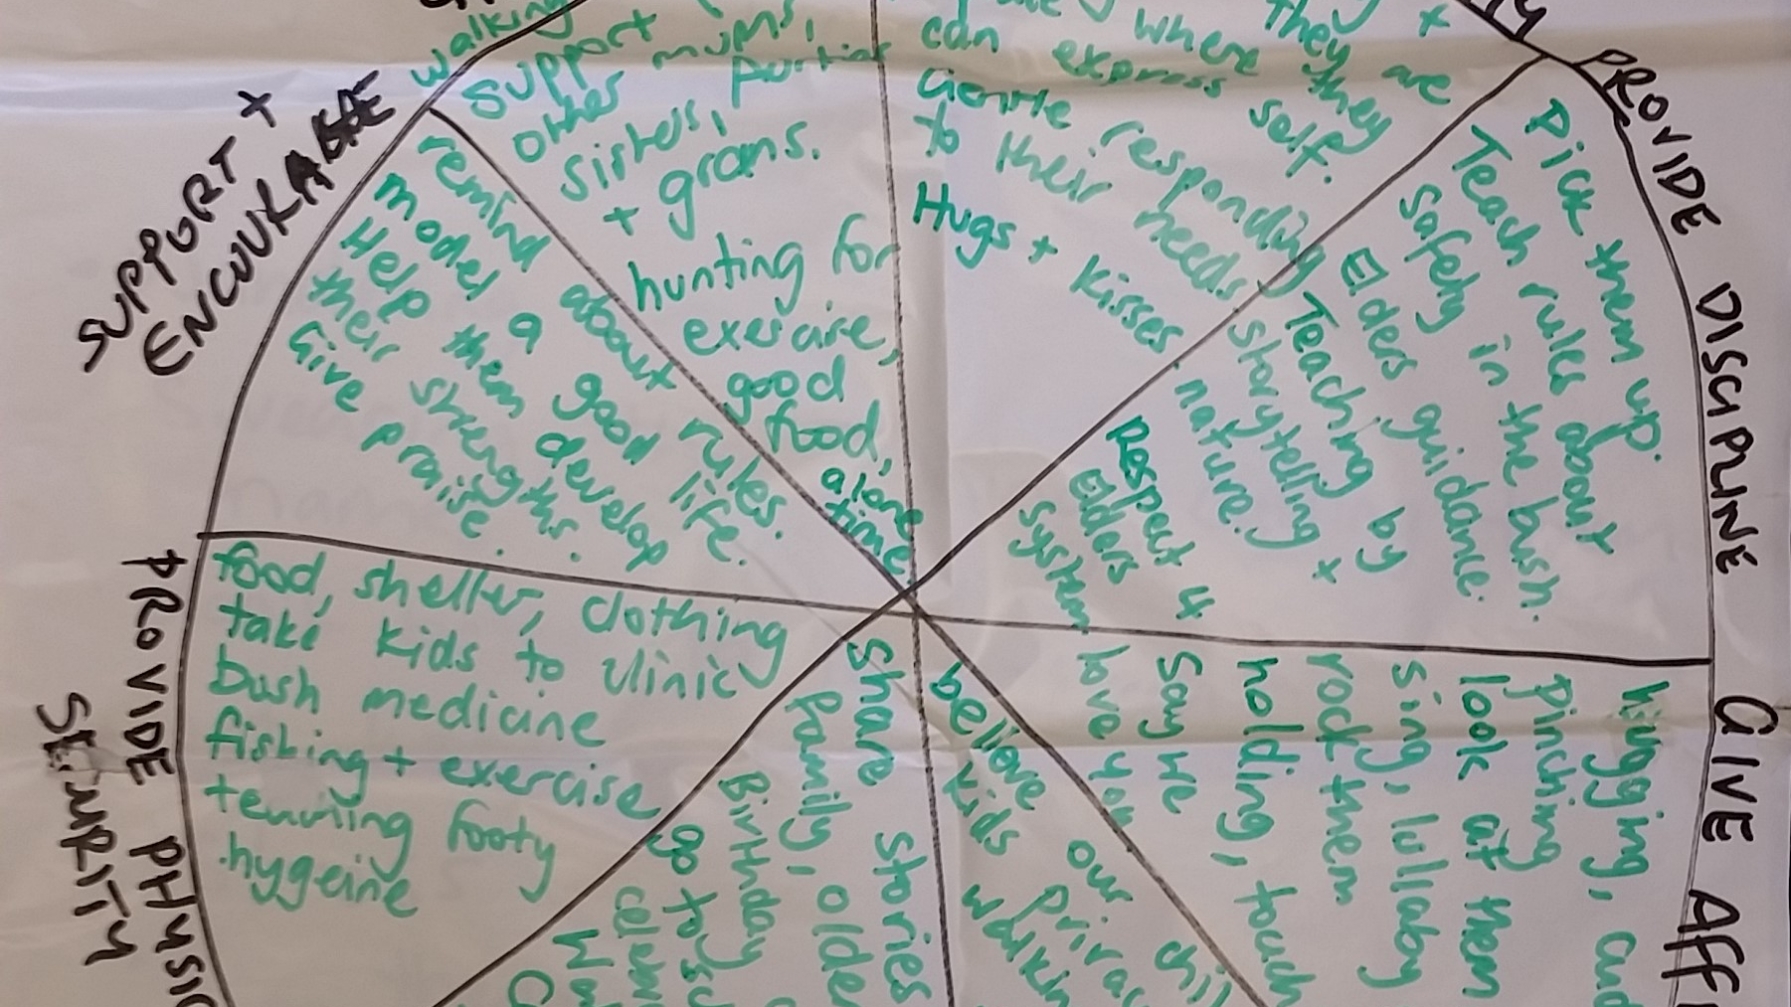 SUPPORT +
ENCOURAGE
remind about rules.
model a good life.
Help them develop
their strengths.
Give praise.
walking
support mums,
other
sisters,
+ grans.
hunting for
exercise,
good
food,
alone
time
where they are
can express self. they
Gentle responding
to their needs
Hugs + kisses
PROVIDE DISCIPLINE
Pick them up.
Teach rules about
safety in the bush.
Elders guidance.
Teaching by
storytelling +
nature.
Respect 4
Elders
system
GIVE AFF
hugging,
Pinching
look at them
sing, lullaby
rock them
holding, touch
Say we
love you
believe our
kids
share stories
family, older
Birthday
go to
PROVIDE PHYSIC
SECURITY
food, shelter, clothing
take kids to clinic
bush medicine
fishing + exercise
footy
hygeine